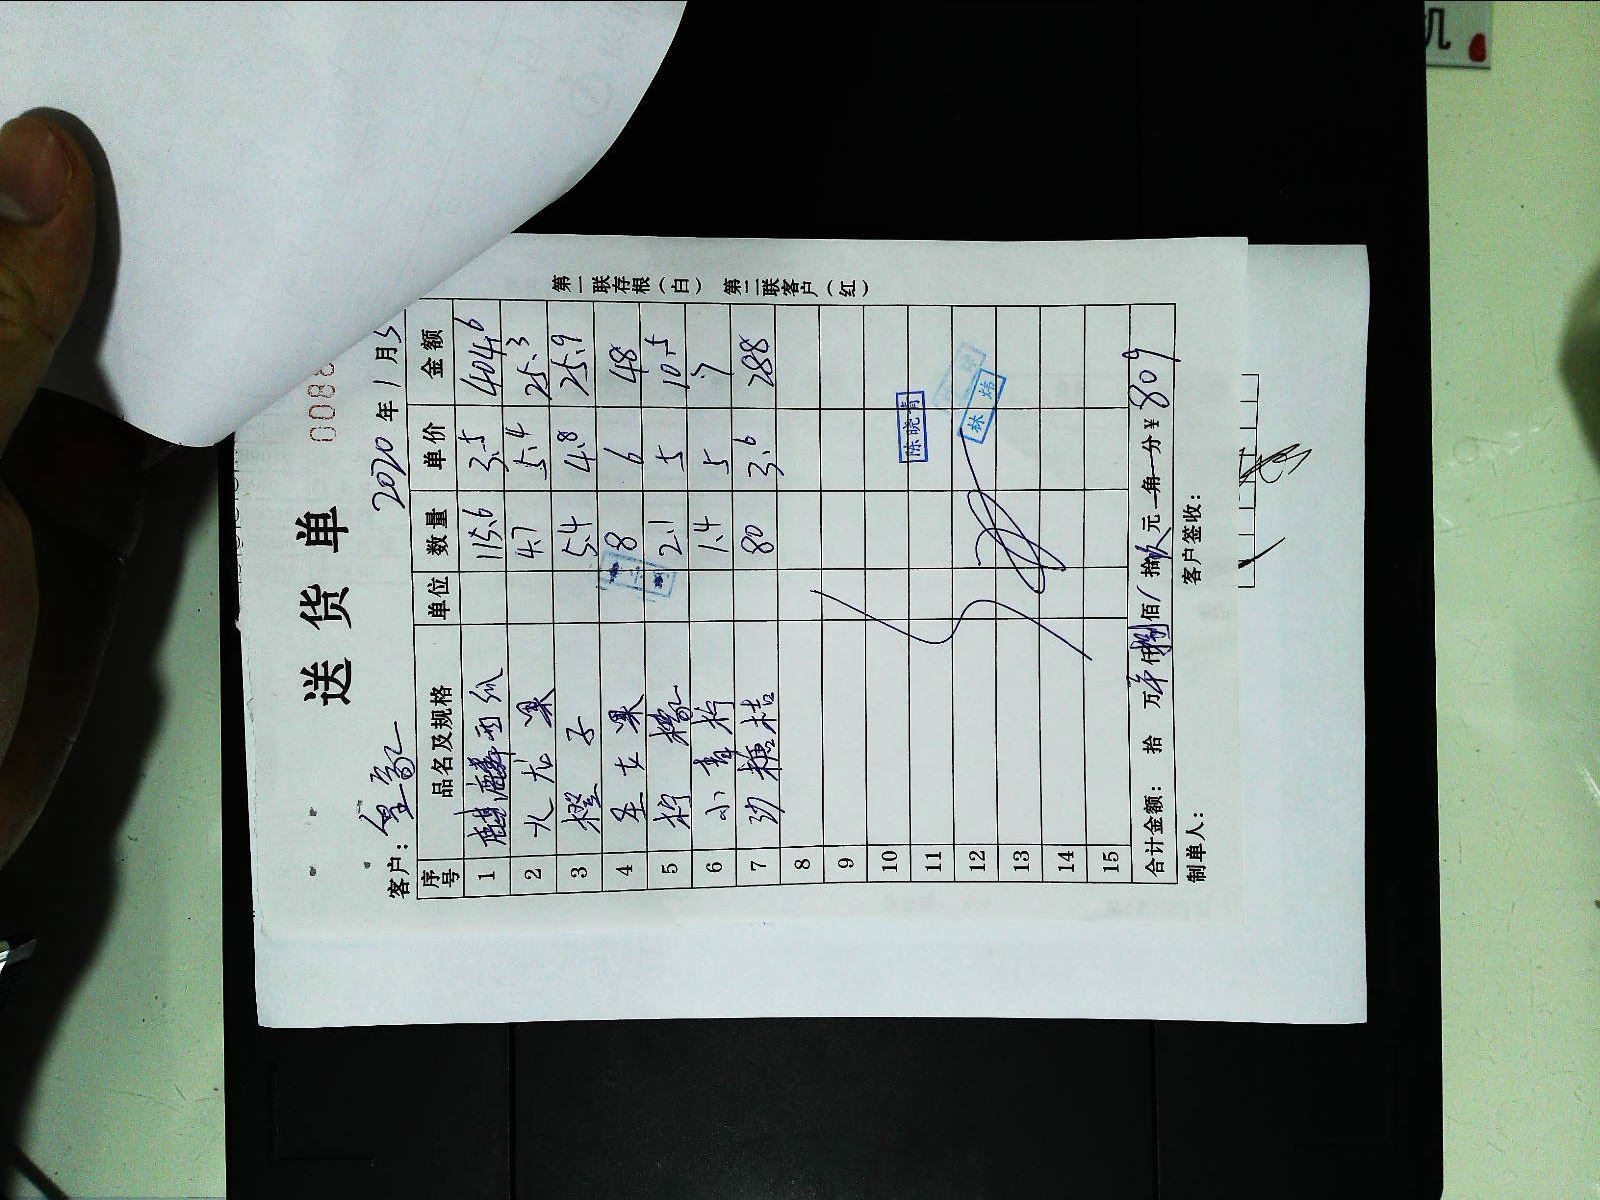 机
0088
送货单
客户: 2020年1月5
序号 品名及规格 单位 数量 单价 金额
1 麒麟西瓜 115.6 3.5 404.6
2 火龙果 4.7 5.4 25.3
3 橙子 5.4 4.8 25.9
4 圣女果 8 6 48
5 柠檬 2.1 5 10.5
6 小青柠 1.4 5 7
7 沙糖桔 80 3.6 288
8
9
10
11 陈晓青
12 林炜
13
14
15
合计金额: 拾 万 仟捌佰 拾玖元 角 分¥ 809
制单人: 客户签收:
第一联存根(白) 第二联客户(红)